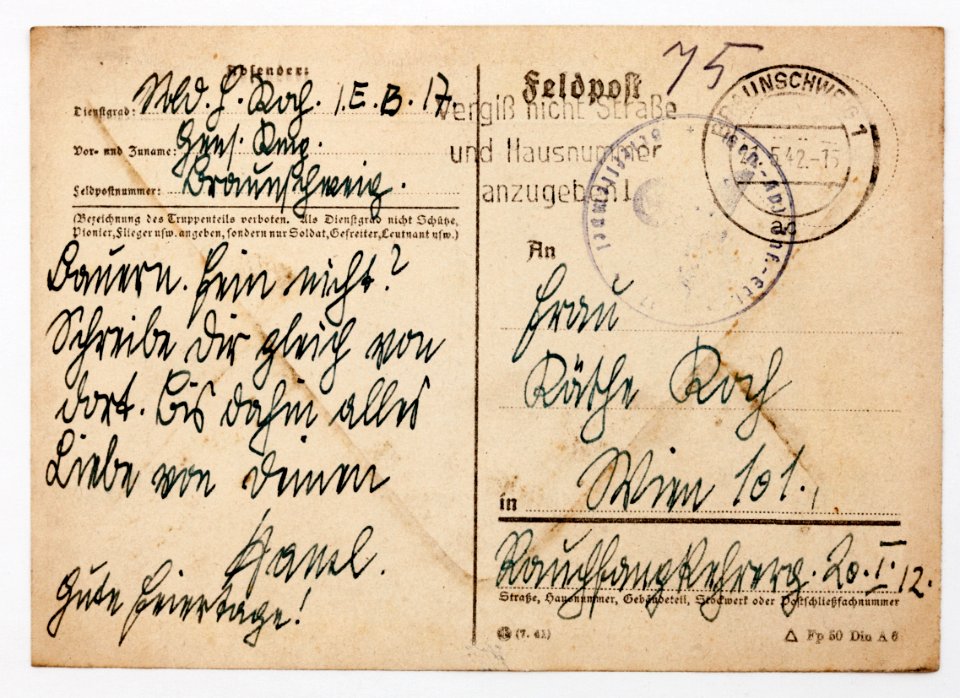 Absender:
Dienstgrad: Sold. H. Koch. I.E.B. 17.
Vor- und Zuname: Gens. Kmp.
Feldpostnummer: Braunschweig.
(Bezeichnung des Truppenteils verboten. Als Dienstgrad nicht Schütze,
Pionier, Flieger usw. angeben, sondern nur Soldat, Gefreiter, Leutnant usw.)
Bauern. Fein nicht?
Schreibe Dir gleich von
dort. Bis dahin alles
Liebe von Deinen
Hansl.
Gute Feiertage!
75
Feldpost
Vergiß nicht Straße
und Hausnummer
anzugeben!
BRAUNSCHWEIG 1
5.42.-15
ac
Briefstempel
An
Frau
Käthe Koch
in Wien 101.,
Rauchfangkehrerg. 20.I. 12.
Straße, Hausnummer, Gebäudeteil, Stockwerk oder Postschließfachnummer
(7. 41)
Fp 50 Din A 6